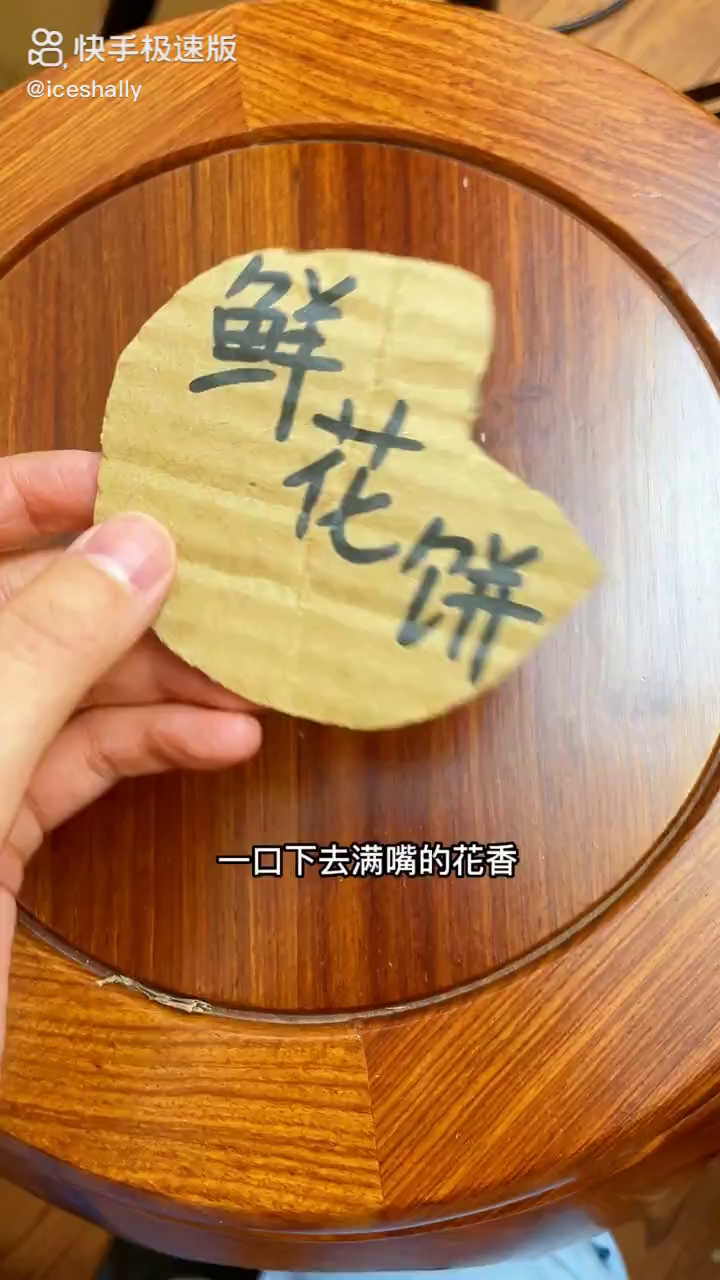 快手极速版
@iceshally
鲜花饼
一口下去满嘴的花香